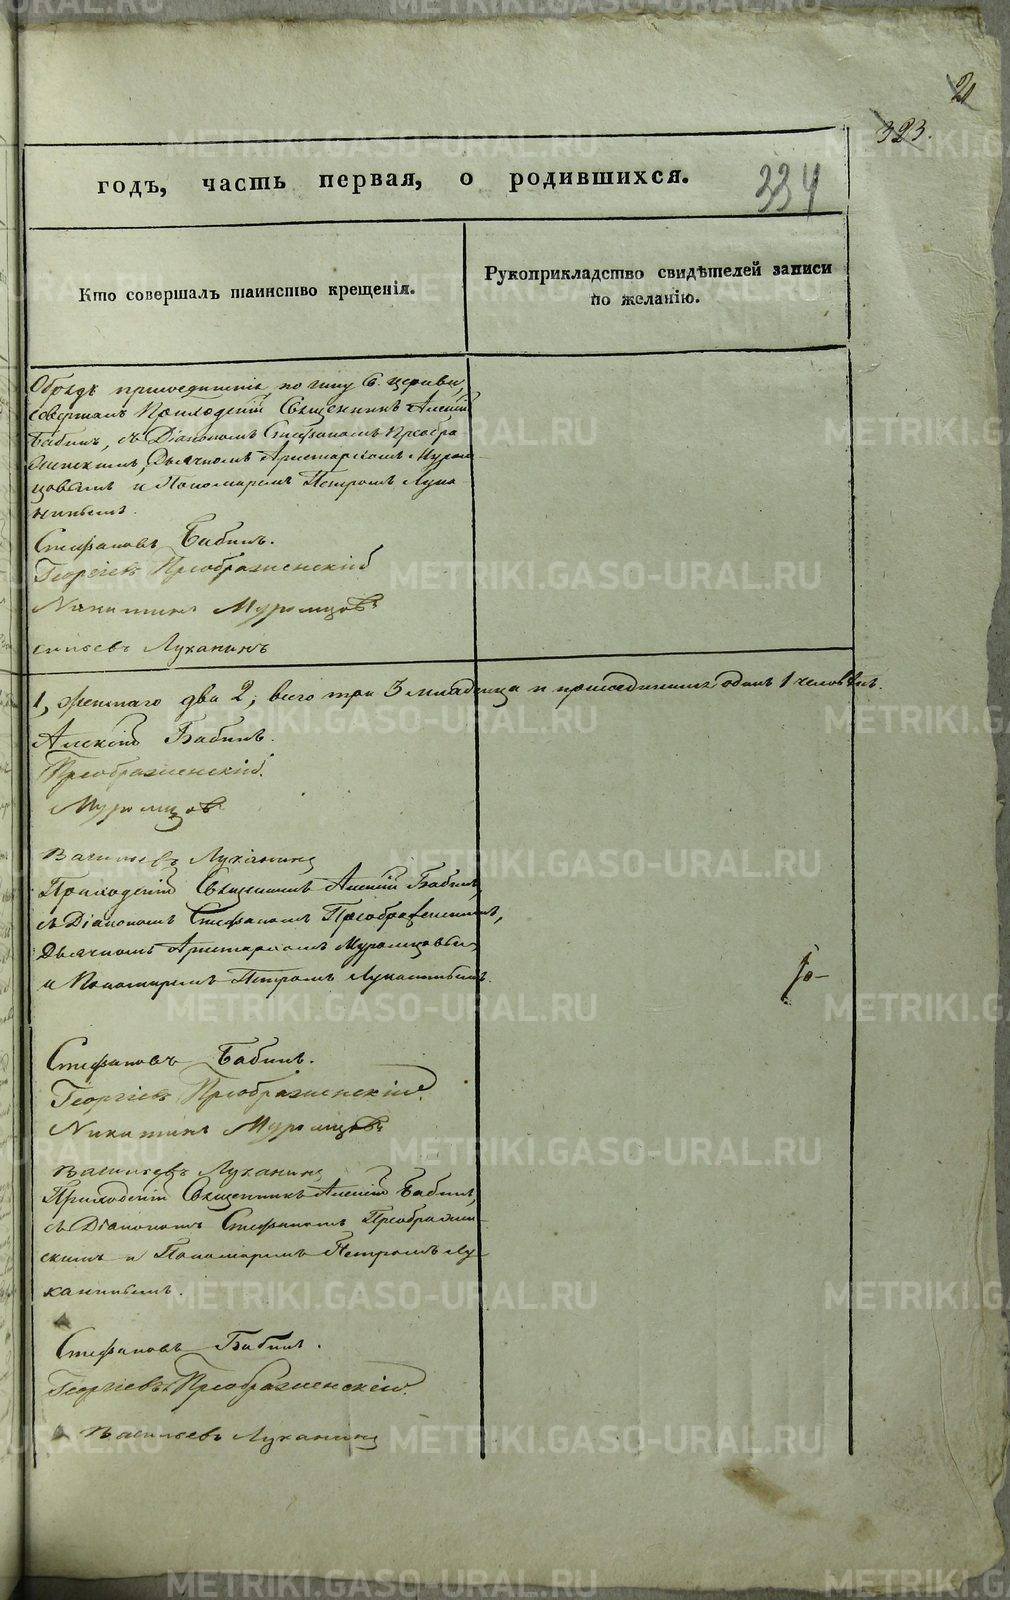 21
323.
годъ, часть первая, о родившихся.
334
Кто совершалъ таинство крещенія.
Рукоприкладство свидѣтелей записи
по желанію.
Обрядъ присоединенія по чину Св. церкви,
совершалъ Приходскій Священникъ Алексій
Бабинъ, съ Діакономъ Стефаномъ Преобра
женскимъ, Дьячкомъ Аристархомъ Муром
цовымъ и Пономаремъ Петромъ Луха
нинымъ.
Стефановъ Бабинъ.
Георгіевъ Преображенскій
Никитинъ Муромцовъ
Луханинъ
1, женскаго два 2, всего три 3 младенца и присоединенъ одинъ 1 человѣкъ.
Алексій Бабинъ.
Преображенскій.
Муромцовъ
Васильевъ Луханинъ
Приходскій Священникъ Алексій Бабинъ,
съ Діакономъ Стефаномъ Преображенскимъ,
Дьячкомъ Аристархомъ Муромцовымъ
и Пономаремъ Петромъ Луханинымъ.
Стефановъ Бабинъ.
Георгіевъ Преображенскій.
Никитинъ Муромцовъ
Васильевъ Луханинъ
Приходскій Священникъ Алексій Бабинъ,
съ Діакономъ Стефаномъ Преображен-
скимъ и Пономаремъ Петромъ Лу-
ханинымъ.
Стефановъ Бабинъ.
Георгіевъ Преображенскій.
Васильевъ Луханинъ
METRIKI.GASO-URAL.RU